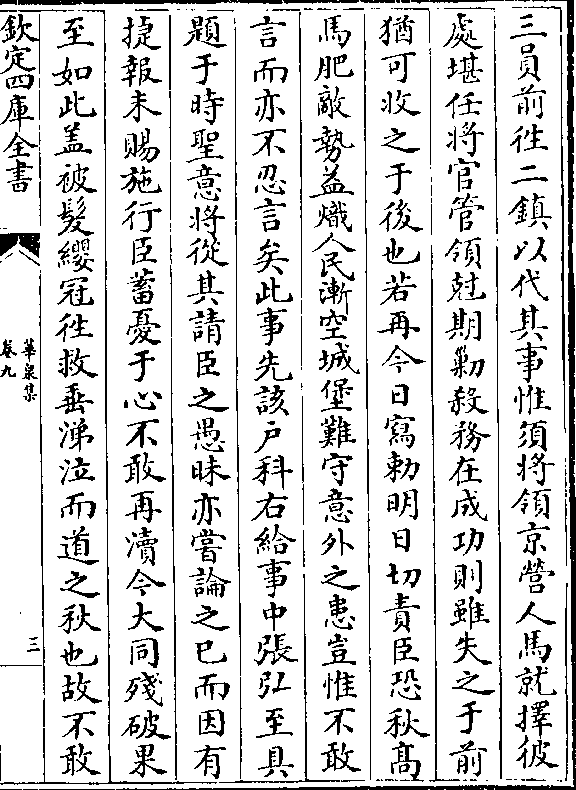 三員前徃二鎮以代其事惟須將領京營人馬就擇彼
處堪任將官管領尅期剿殺務在成功則雖失之于前
猶可收之于後也若再今日寫勅明日切責臣恐秋髙
馬肥敵勢益熾人民漸空城堡難守意外之患豈惟不敢
言而亦不忍言矣此事先該户科右給事中張弘至具
題于時聖意將從其請臣之愚昧亦嘗論之已而因有
捷報未賜施行臣蓄憂于心不敢再瀆今大同殘破果
至如此盖被髮纓冠徃救垂涕泣而道之秋也故不敢
欽定四庫全書
華泉集
卷九
三